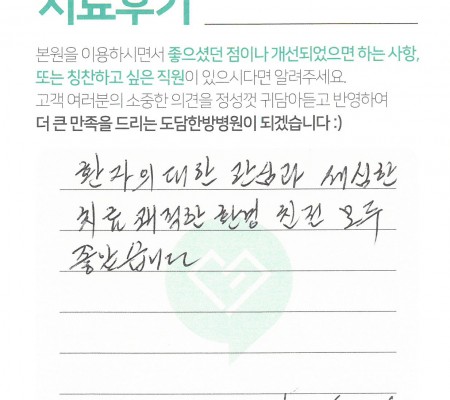 치료후기
본원을 이용하시면서 좋으셨던 점이나 개선되었으면 하는 사항,
또는 칭찬하고 싶은 직원이 있으시다면 알려주세요.
고객 여러분의 소중한 의견을 정성껏 귀담아듣고 반영하여
더 큰 만족을 드리는 도담한방병원이 되겠습니다 :)
환자의 대한 관심과 세심한
치료 쾌적한 환경 친절 모두
좋았습니다